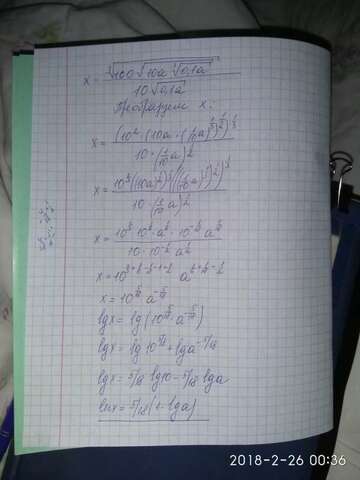 x = ∛(100√(10a∛(0,1a))) / 10√(0,1a)
Преобразуем x:
x = (10² · (10a · (1/10 a)^(1/3))^(1/2))^(1/3) / 10 · (1/10 a)^(1/2)
x = 10^(2/3) ((10a)^(1/2))^(1/3) (((1/10 a)^(1/3))^(1/2))^(1/3) / 10 · (1/10 a)^(1/2)
x = 10^(2/3) · 10^(1/6) · a^(1/6) · 10^(-1/18) a^(1/18) / 10 · 10^(-1/2) a^(1/2)
x = 10^(2/3+1/6-1/18-1+1/2) a^(1/6+1/18-1/2)
x = 10^(5/18) a^(-5/18)
lgx = lg(10^(5/18) · a^(-5/18))
lgx = lg 10^(5/18) + lga^(-5/18)
lgx = 5/18 lg10 - 5/18 lga
lgx = 5/18(1 - lga)
2018-2-26 00:36